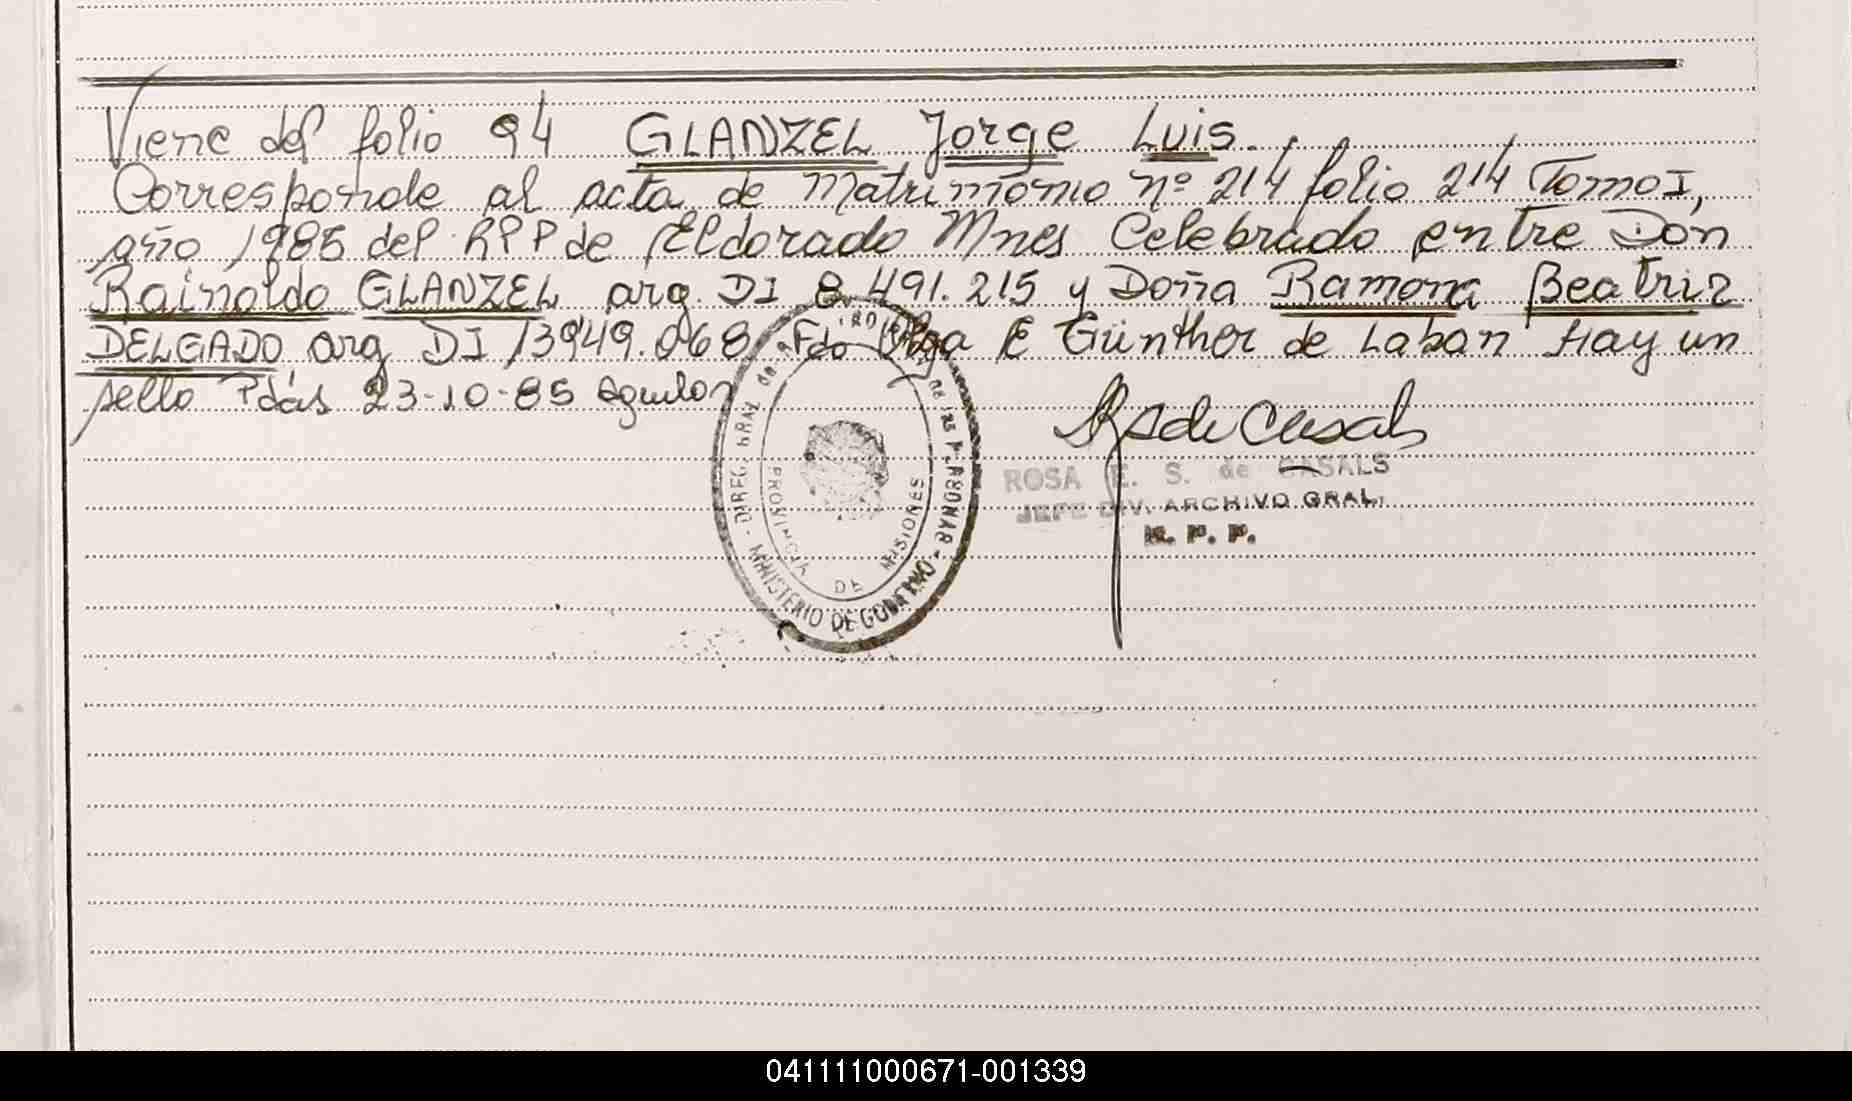 Viene del folio 94 GLANZEL Jorge Luis.
Corresponde al acta de Matrimonio nº 214 folio 214 Tomo I,
año 1985 del RPP de Eldorado Mnes Celebrado entre Don
Rainoldo GLANZEL arg. DI 8.491.215 y Doña Ramona Beatriz
DELGADO arg DI 13949.068 Fdo Olga E Günther de Laban Hay un
sello Pdás 23-10-85
ROSA E. S. de CASALS
JEFE DIV. ARCHIVO GRAL.
R. P. P.
DIREC. GRAL de las PERSONAS - MINISTERIO DE GOBIERNO -
PROVINCIA DE MISIONES
041111000671-001339